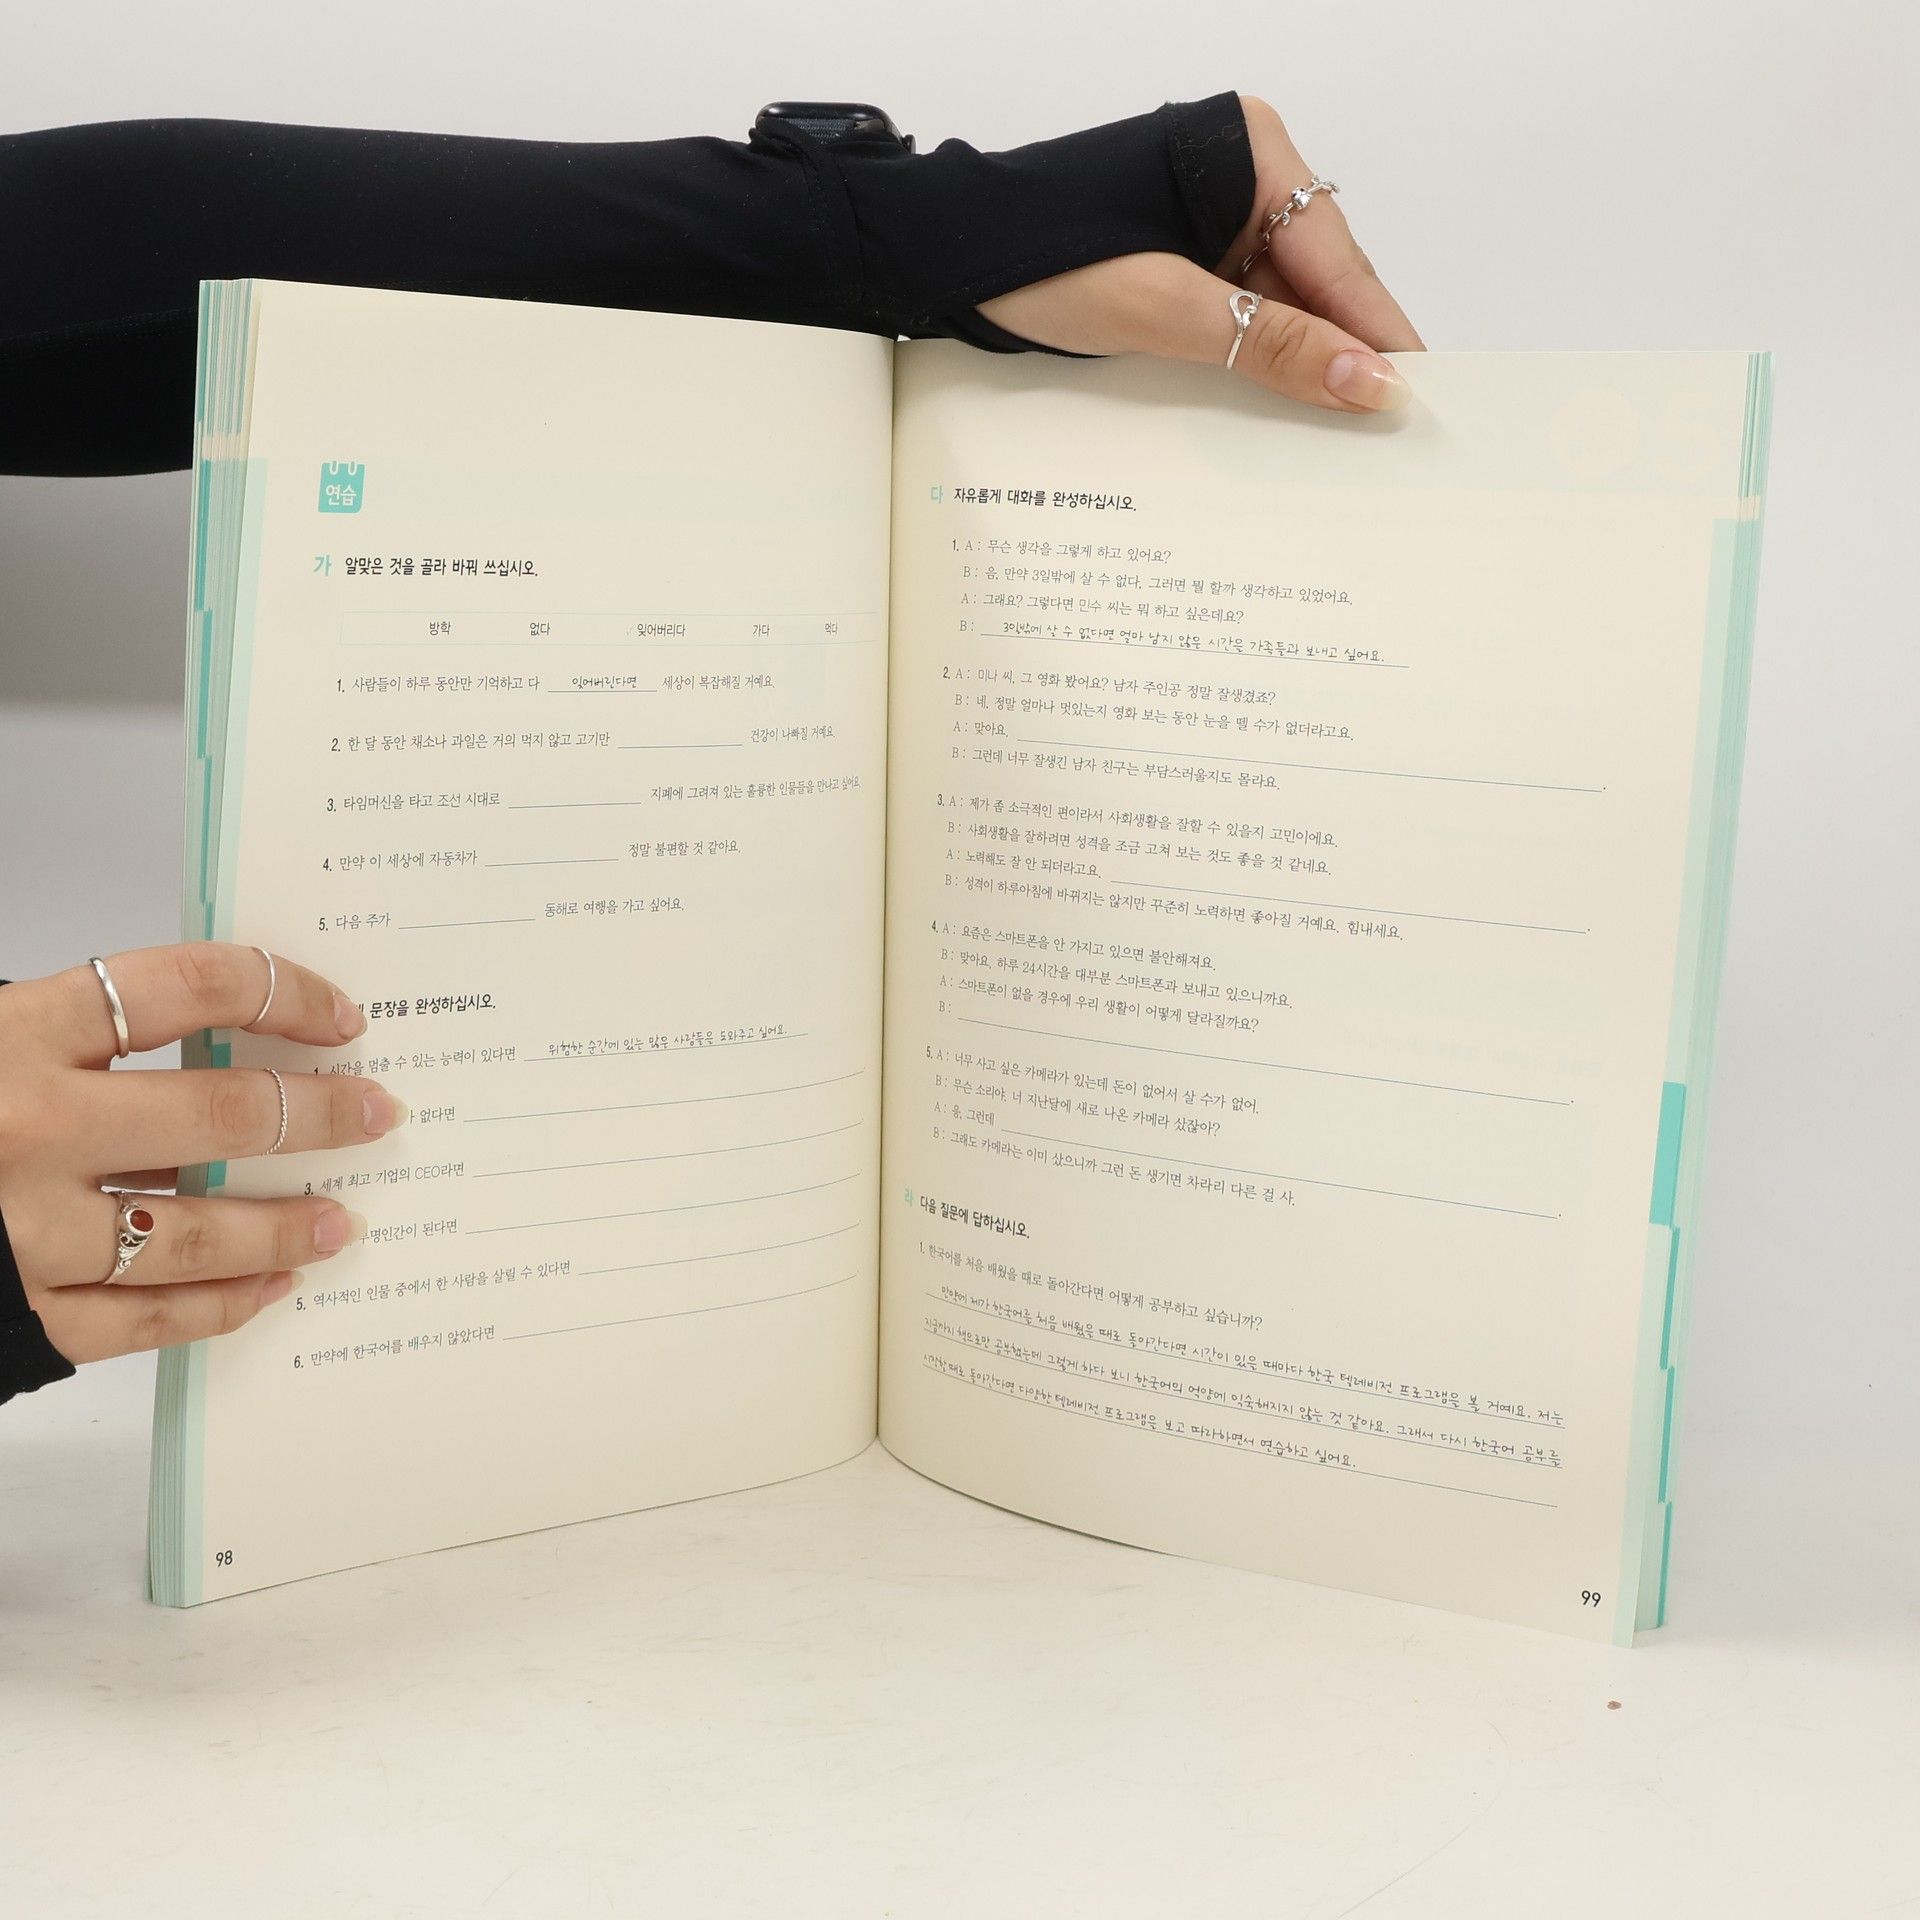 연습
가 알맞은 것을 골라 바꿔 쓰십시오.
방학 없다 ✓잊어버리다 가다 먹다
1. 사람들이 하루 동안만 기억하고 다 잊어버린다면 세상이 복잡해질 거예요.
2. 한 달 동안 채소나 과일은 거의 먹지 않고 고기만 건강이 나빠질 거예요.
3. 타임머신을 타고 조선 시대로 지폐에 그려져 있는 훌륭한 인물들을 만나고 싶어요.
4. 만약 이 세상에 자동차가 정말 불편할 것 같아요.
5. 다음 주가 동해로 여행을 가고 싶어요.
문장을 완성하십시오.
1. 시간을 멈출 수 있는 능력이 있다면 위험한 순간에 있는 많은 사람들을 도와주고 싶어요.
없다면
3. 세계 최고 기업의 CEO라면
투명인간이 된다면
5. 역사적인 인물 중에서 한 사람을 살릴 수 있다면
6. 만약에 한국어를 배우지 않았다면
98
다 자유롭게 대화를 완성하십시오.
1. A : 무슨 생각을 그렇게 하고 있어요?
B : 음, 만약 3일밖에 살 수 없다, 그러면 뭘 할까 생각하고 있었어요.
A : 그래요? 그렇다면 민수 씨는 뭐 하고 싶은데요?
B : 3일밖에 살 수 없다면 얼마 남지 않은 시간을 가족들과 보내고 싶어요.
2. A : 미나 씨, 그 영화 봤어요? 남자 주인공 정말 잘생겼죠?
B : 네, 정말 얼마나 멋있는지 영화 보는 동안 눈을 뗄 수가 없더라고요.
A : 맞아요. .
B : 그런데 너무 잘생긴 남자 친구는 부담스러울지도 몰라요.
3. A : 제가 좀 소극적인 편이라서 사회생활을 잘할 수 있을지 고민이에요.
B : 사회생활을 잘하려면 성격을 조금 고쳐 보는 것도 좋을 것 같네요.
A : 노력해도 잘 안 되더라고요. .
B : 성격이 하루아침에 바뀌지는 않지만 꾸준히 노력하면 좋아질 거예요. 힘내세요.
4. A : 요즘은 스마트폰을 안 가지고 있으면 불안해져요.
B : 맞아요, 하루 24시간을 대부분 스마트폰과 보내고 있으니까요.
A : 스마트폰이 없을 경우에 우리 생활이 어떻게 달라질까요?
B : .
5. A : 너무 사고 싶은 카메라가 있는데 돈이 없어서 살 수가 없어.
B : 무슨 소리야. 너 지난달에 새로 나온 카메라 샀잖아?
A : 응, 그런데 .
B : 그래도 카메라는 이미 샀으니까 그런 돈 생기면 차라리 다른 걸 사.
라 다음 질문에 답하십시오.
1. 한국어를 처음 배웠을 때로 돌아간다면 어떻게 공부하고 싶습니까?
만약에 제가 한국어를 처음 배웠을 때로 돌아간다면 시간이 있을 때마다 한국 텔레비전 프로그램을 볼 거예요. 저는
지금까지 책으로만 공부했는데 그렇게 하다 보니 한국어의 억양에 익숙해지지 않는 것 같아요. 그래서 다시 한국어 공부를
시작할 때로 돌아간다면 다양한 텔레비전 프로그램을 보고 따라하면서 연습하고 싶어요.
99